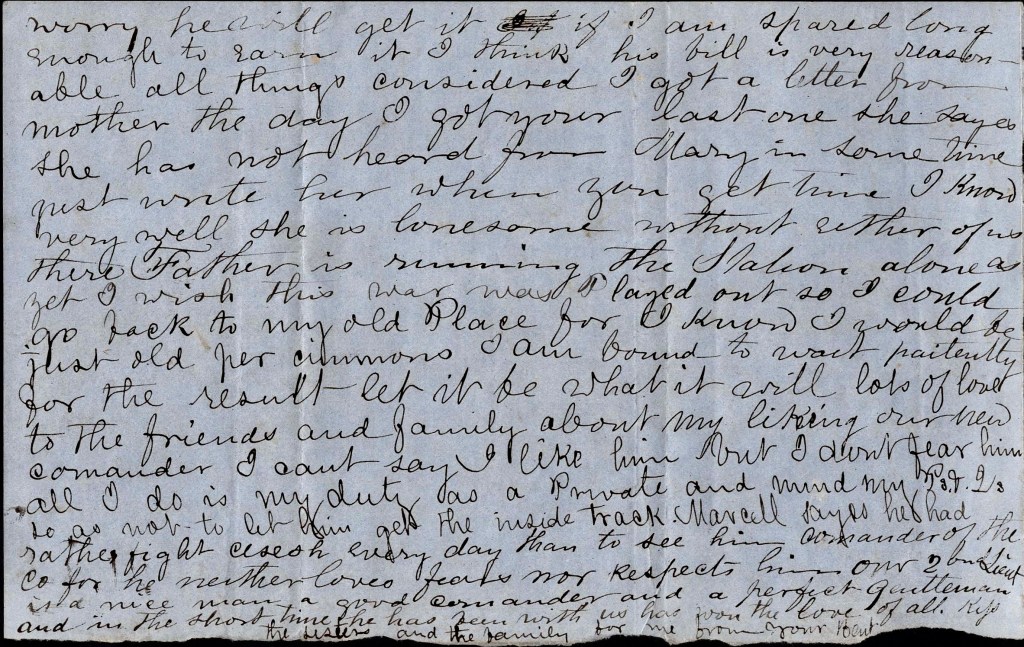 worry he will get it if I am spared long
enough to earn it I think his bill is very reason
able all things considered I got a letter from
mother the day I got your last one she sayes
she has not heard from Mary in some time
just write her when you get time I know
very well she is lonesome without either of us
there Father is running the Station alone as
yet I wish this war was Played out so I could
go back to my old Place for I know I would be
just old per cimmons I am bound to wait paitently
for the result let it be what it will lots of love
to the friends and family about my liking our new
comander I cant say I like him but I dont fear him
all I do is my duty as a Private and mind my P.s. & Q.s
so as not to let him get the inside track Marcell sayes he had
rather fight cesesh every day than to see him comander of the
co for he neither loves fears nor respects him our 2 ond Lieut
is a nice man a good comander and a perfect Gentleman
and in the short time he has been with us has won the love of all kiss
the sisters and the family for me from your Bent